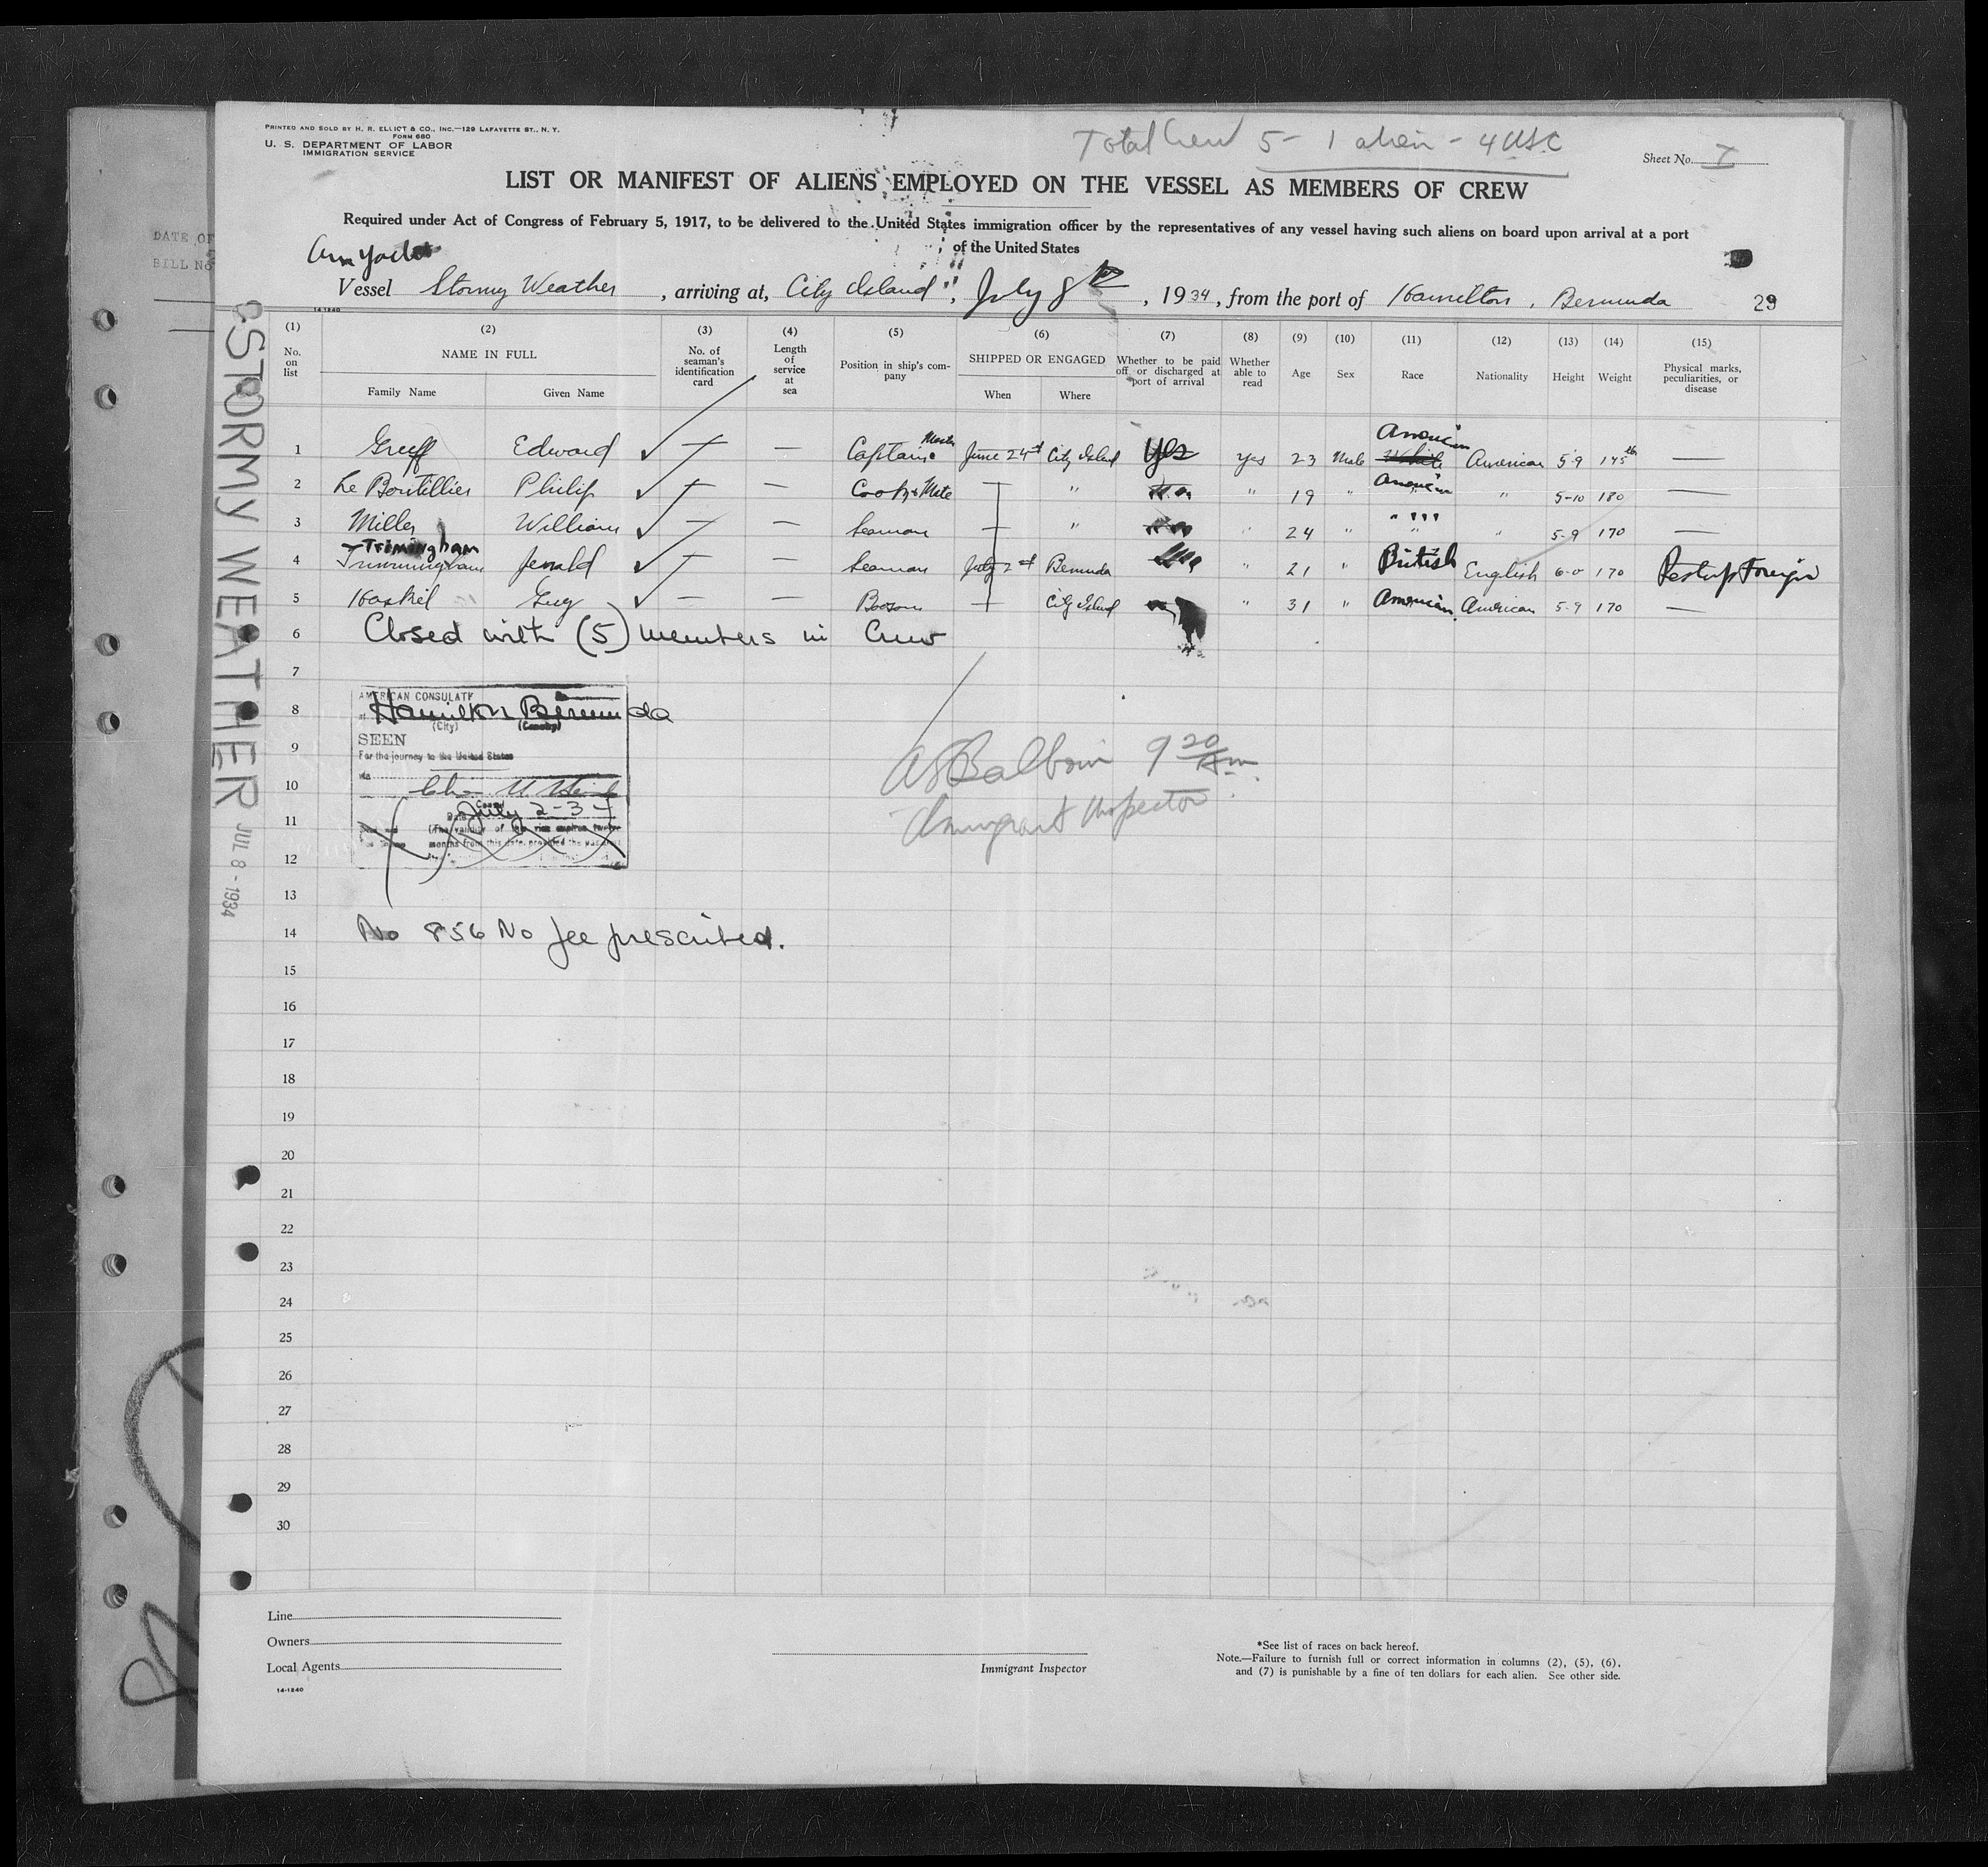 PRINTED AND SOLD BY H. R. ELLIOT & CO., INC.—129 LAFAYETTE ST., N. Y.
FORM 680
U. S. DEPARTMENT OF LABOR
IMMIGRATION SERVICE
Total Crew 5 - 1 alien - 4 USC
Sheet No. I
LIST OR MANIFEST OF ALIENS EMPLOYED ON THE VESSEL AS MEMBERS OF CREW
Required under Act of Congress of February 5, 1917, to be delivered to the United States immigration officer by the representatives of any vessel having such aliens on board upon arrival at a port
of the United States
Am Yacht
Vessel Stormy Weather, arriving at, City Island, July 8th, 1934, from the port of Hamilton, Bermuda 29
14-1240
(1) No. on list
(2) NAME IN FULL
Family Name Given Name
(3) No. of seaman's identification card
(4) Length of service at sea
(5) Position in ship's company
(6) SHIPPED OR ENGAGED
When Where
(7) Whether to be paid off or discharged at port of arrival
(8) Whether able to read
(9) Age
(10) Sex
(11) Race
(12) Nationality
(13) Height
(14) Weight
(15) Physical marks, peculiarities, or disease
1 Greeff Edward — Captain Master June 24th City Island yes yes 23 Male American White American 5-9 145 lb —
2 Le Boutillier Philip — Cook & Mate " " 19 " American " 5-10 180 —
3 Miller William — Seaman " " 24 " " " 5-9 170 —
4 Trimingham Trimmingham Jerald — Seaman July 2nd Bermuda " 21 " British English 6-0 170
5 Haskel Guy — — Bosun City Island " 31 " American American 5-9 170 —
6 Closed with (5) members in Crew
7
8
9
10
11
12
13
14
AMERICAN CONSULATE
at Hamilton Bermuda
(City) (Country)
SEEN
For the journey to the United States
via
Consul
Date July 2-34
A S Balboin 9 20 Am
Immigrant Inspector
No 856 No fee prescribed.
15
16
17
18
19
20
21
22
23
24
25
26
27
28
29
30
Line
Owners
Local Agents
14-1240
Immigrant Inspector
*See list of races on back hereof.
Note.—Failure to furnish full or correct information in columns (2), (5), (6),
and (7) is punishable by a fine of ten dollars for each alien. See other side.
STORMY WEATHER JUL 8 - 1934
DATE OF
BILL No